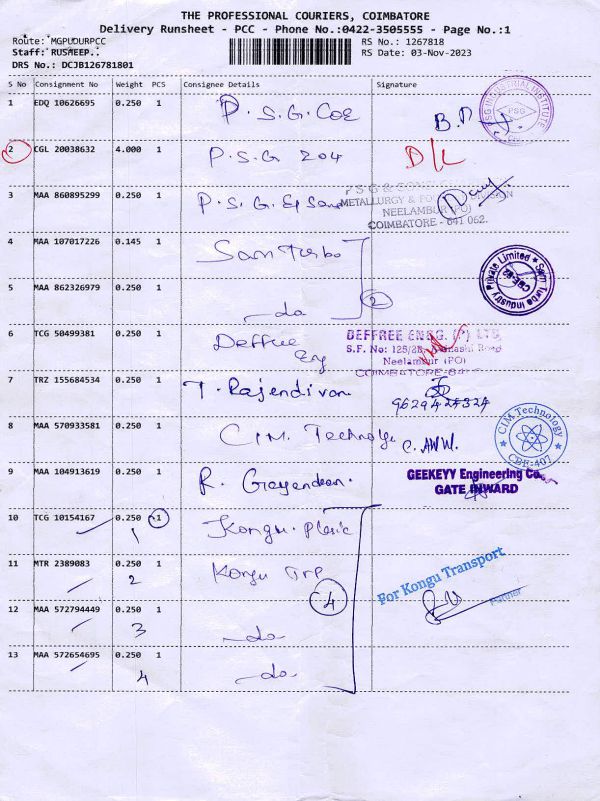 THE PROFESSIONAL COURIERS, COIMBATORE
Delivery Runsheet - PCC - Phone No.:0422-3505555 - Page No.:1
Route: MGPUDURPCC RS No.: 1267818
Staff: RUSHEEP.. RS Date: 03-Nov-2023
DRS No.: DCJB126781801
S No Consignment No Weight PCS Consignee Details Signature
1 EDQ 10626695 0.250 1 P.S.G. COE
PSG INDUSTRIAL INSTITUTE
PSG
2 CGL 20038632 4.000 1 P.S.G 204 D/L
3 MAA 860895299 0.250 1 P.S.G.
P S G & DIVISION
METALLURGY & FO
NEELAMBUR (PO)
COIMBATORE - 641 062.
4 MAA 107017226 0.145 1 Sam Turbo
Sam Turbo Industry Private Limited
CBE-62
5 MAA 862326979 0.250 1 do 2
6 TCG 50499381 0.250 1 Deffree Eng
DEFFREE ENGG. (P) LTD,
S.F. No: 125/2B, Road
Neelambur (PO)
COIMBATORE-641
7 TRZ 155684534 0.250 1 T. Rajendiran
8 MAA 570933581 0.250 1 C.I.M. Technology
CIM Technology
CBE-407
9 MAA 104913619 0.250 1 R. Gayendran.
GEEKEYY Engineering Co.,
GATE INWARD
10 TCG 10154167 0.250 1 Kongu
1
11 MTR 2389083 0.250 1 Kongu Trp
2 4
For Kongu Transport
Partner
12 MAA 572794449 0.250 1 do
3
13 MAA 572654695 0.250 1 do
4